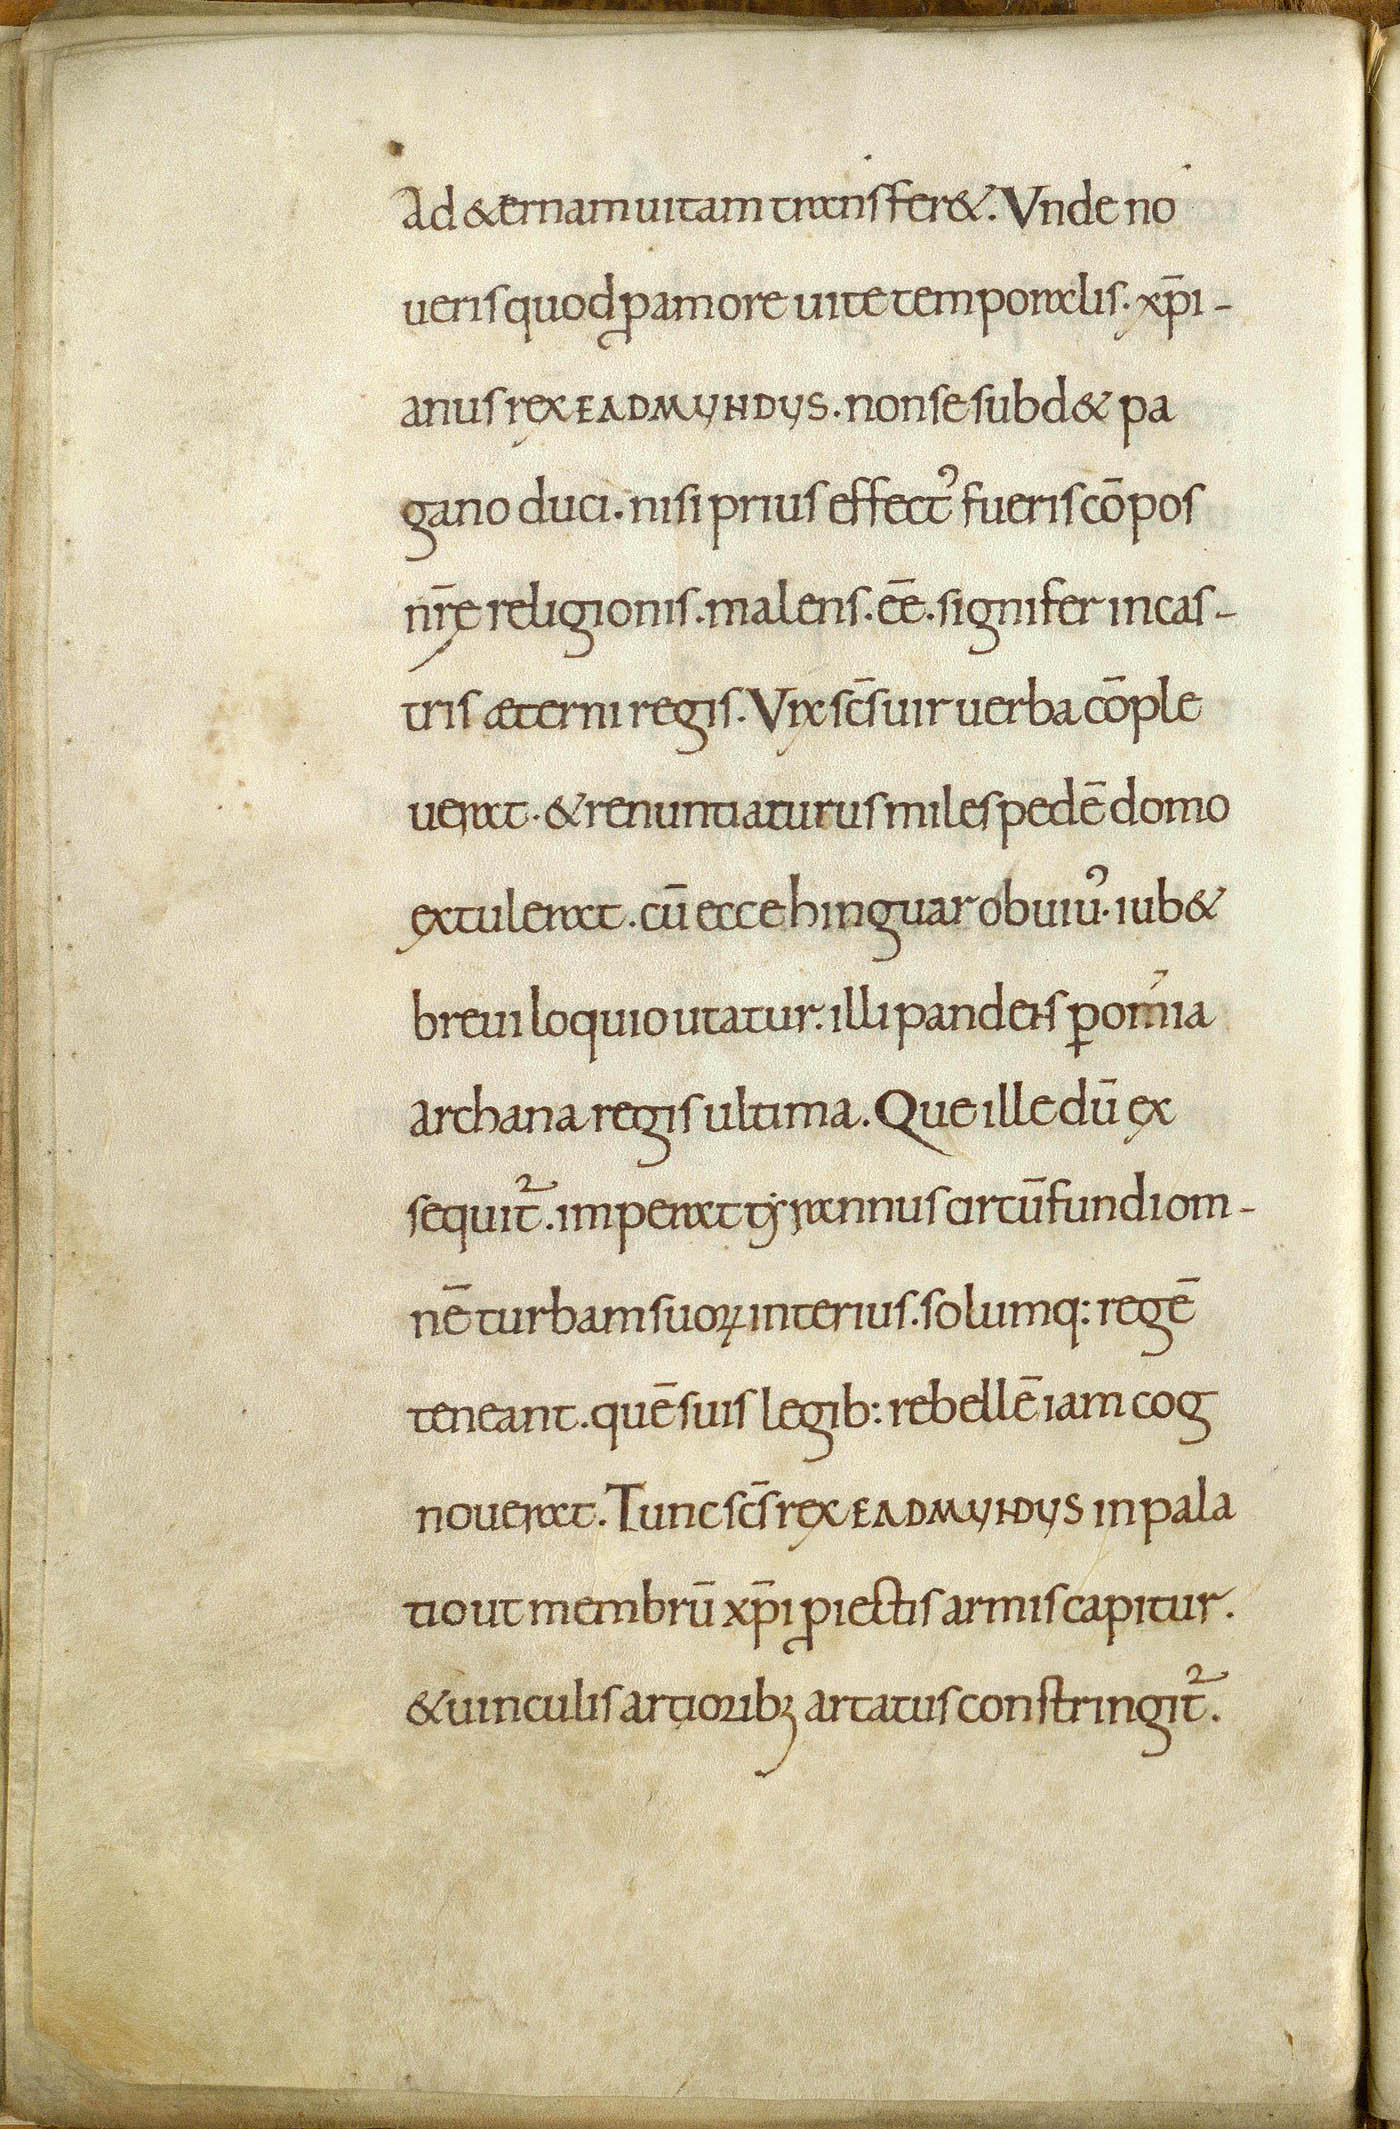 Ad &ernam uitam transfer&. Vnde no
ueris quod ꝓ amore uite temporalis. xp̄i-
anus rex EADMVNDVS. non se subd& pa
gano duci. nisi prius effect᾽ fueris cō pos
nr̄ę religionis. malens. eē. signifer in cas-
tris æterni regis. Vix sc̄s uir uerba cō ple
uerat. & renuntiaturus miles pedē domo
extulerat. cū ecce hinguar obuiu᾽. iub&
breui loquio utatur. illi pandens ꝑ om̄ia
archana regis ultima. Que ille dū ex
sequit᷑. imperat tẏrannus circū fundi om-
nē turbam suoꝝ interius. solumq: regē
teneant. quē suis legib: rebellē iam cog
nouerat. Tunc sc̄s rex EADMVNDVS in pala
tio ut membrū xp̄i ꝓiectis armis capitur.
& uinculis artioribꝫ artatus constringit᷑.